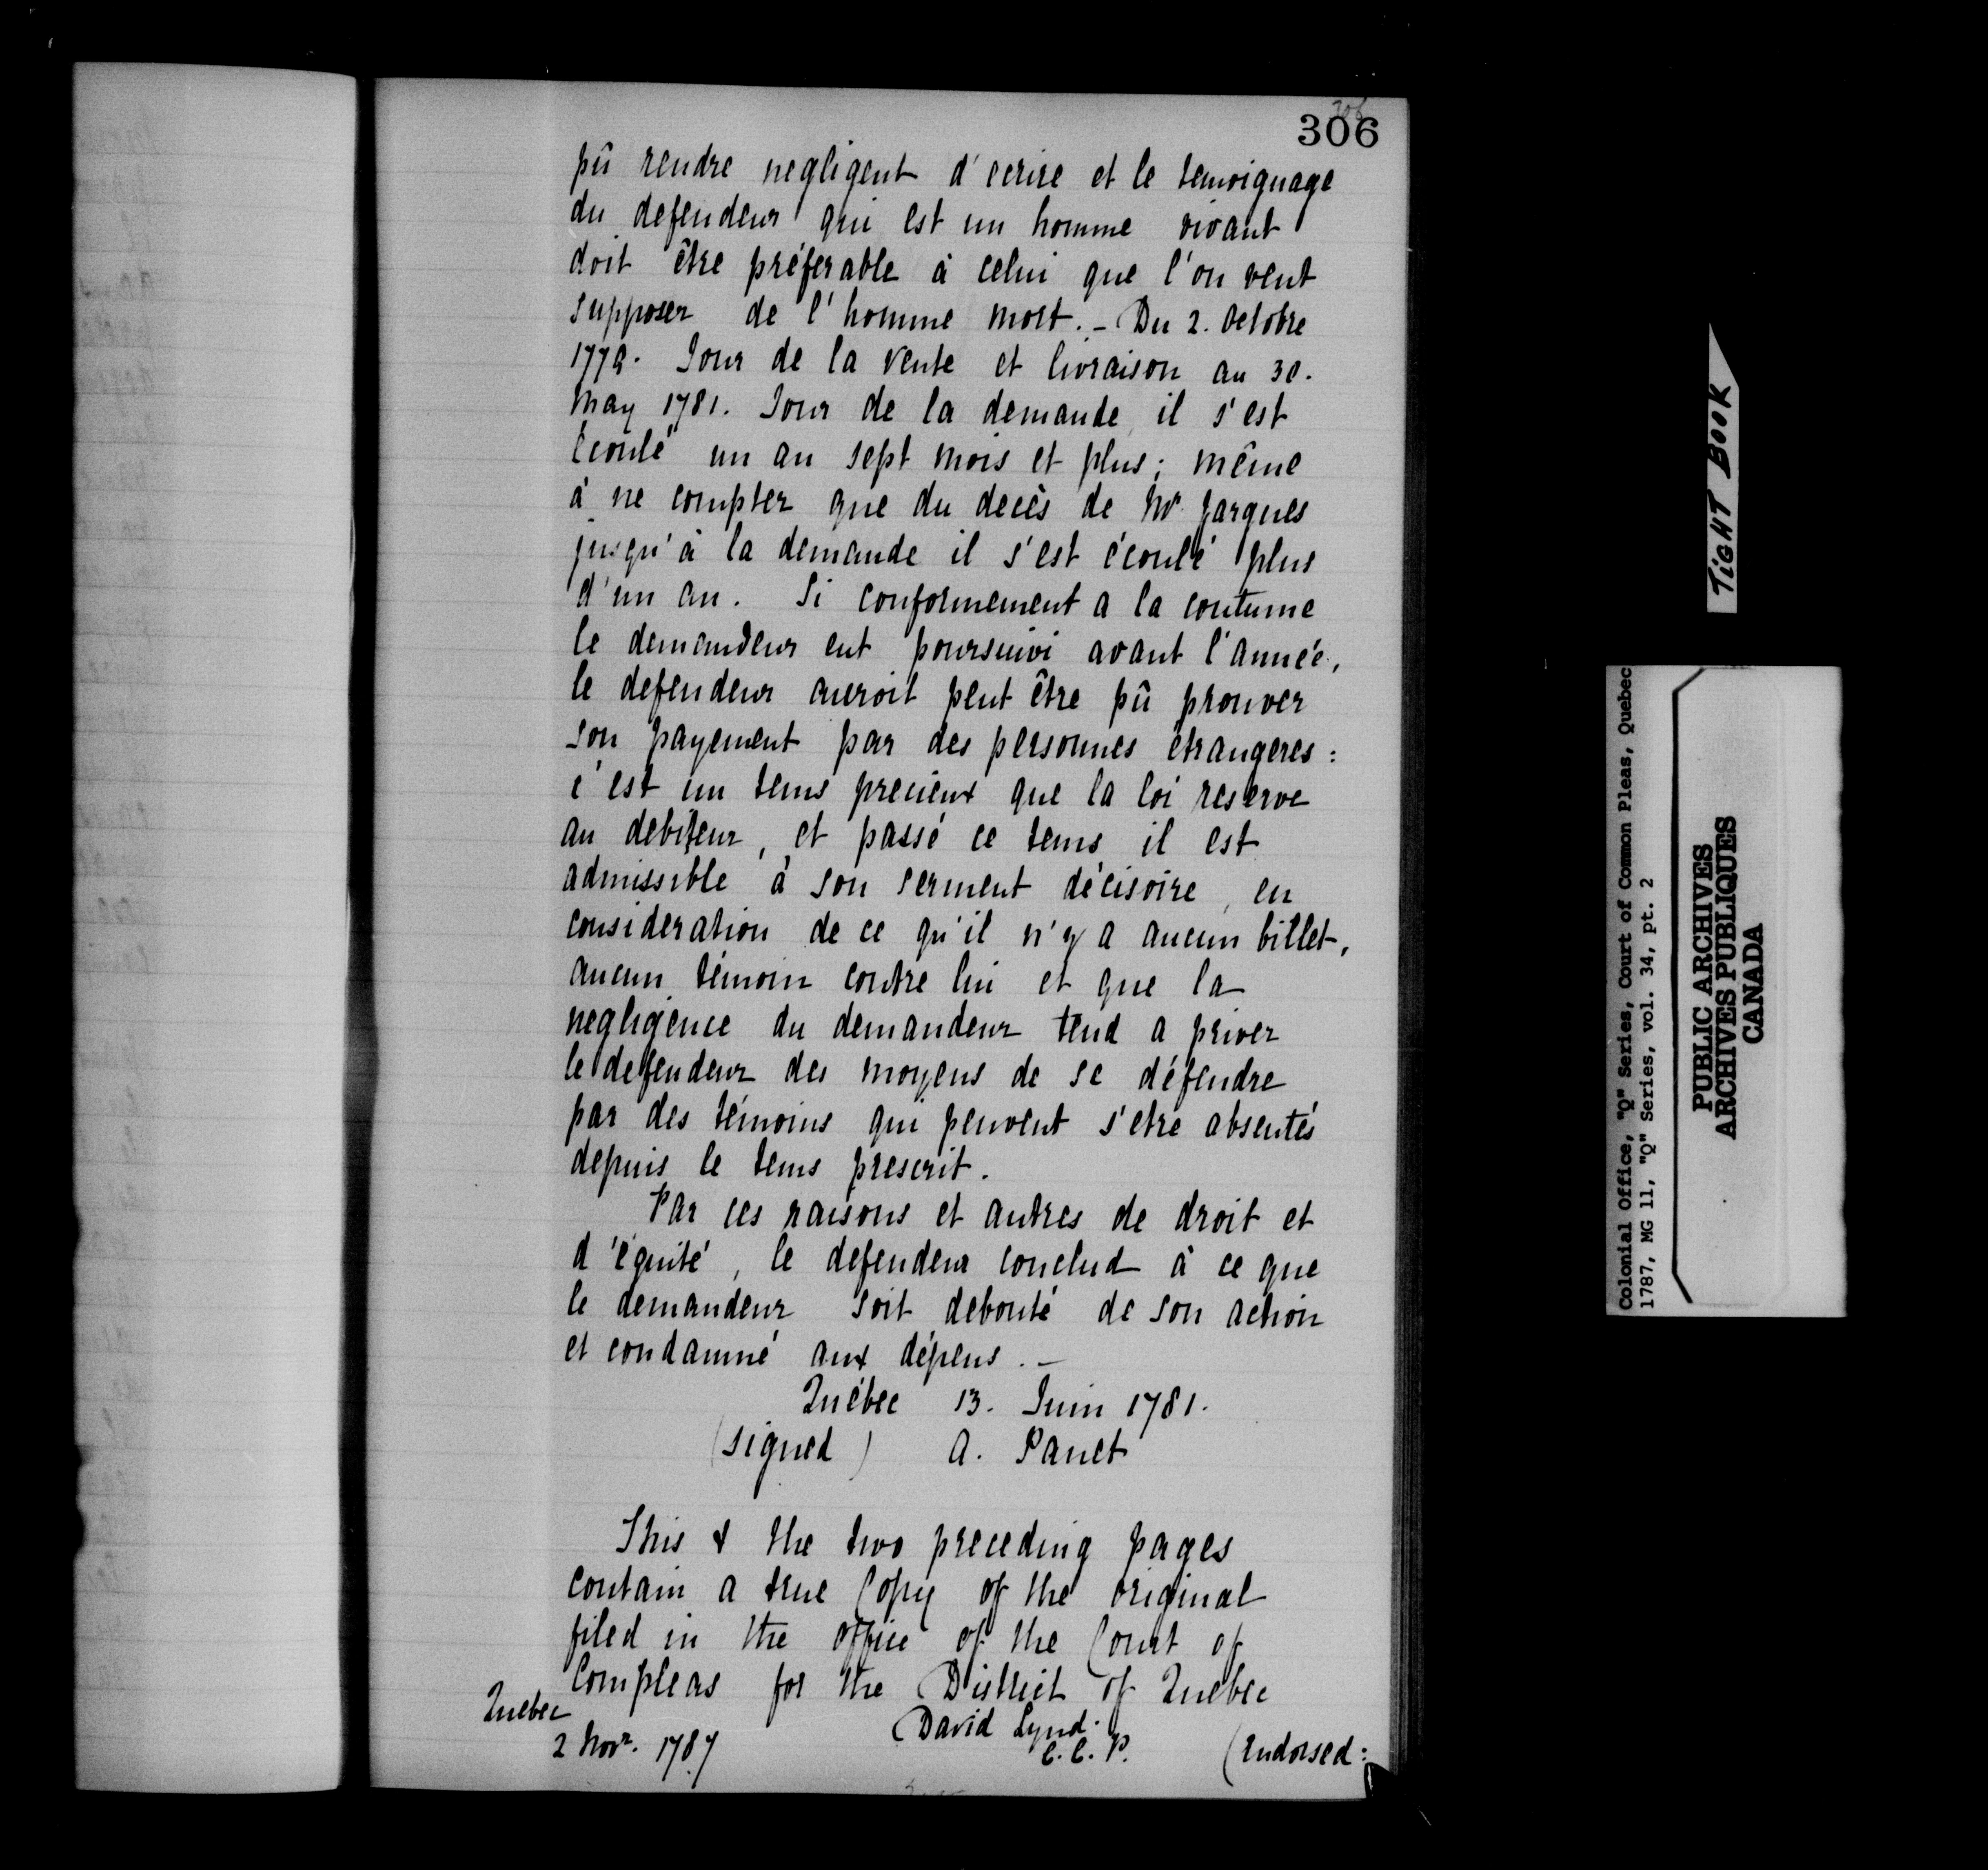 306
306
pû rendre negligent d'ecrire et le temoignage
du defendeur qui est un homme vivant
doit être préferable à celui que l'on veut
supposer de l'homme mort. – Du 2. Octobre
1779. Jour de la vente et livraison au 30.
May 1781. Jour de la demande, il s'est
écoulé un an sept mois et plus; même
à ne compter que du decès de Mr. Jarques
jusqu'à la demande il s'est écoulé plus
d'un an. Si conformement a la coutume
le demandeur eut poursuivi avant l'année,
le defendeur aueroit peut être pû prouver
son payement par des personnes étrangeres:
c'est un tems precieux que la loi reserve
au debiteur, et passé ce tems il est
admissible à son serment décisoire, en
consideration de ce qu'il n'y a aucun billet,
aucun témoin contre lui et que la
negligence du demandeur tend a priver
le defendeur des moyens de se défendre
par des témoins qui peuvent s'etre absentés
depuis le tems prescrit.
Par ces raisons et autres de droit et
d'équité, le defendeur conclud à ce que
le demandeur soit debouté de son action
et condamné aux dépens. –
Québec 13. Juin 1781.
(signed) A. Panet
This & the two preceding pages
contain a true Copy of the original
filed in the office of the Court of
Compleas for the District of Quebec
Quebec
David Lynd.
2 Novr. 1787
C. C. P.
(Endorsed:
TIGHT BOOK
Colonial Office, "Q" Series, Court of Common Pleas, Quebec
1787, MG 11, "Q" Series, vol. 34, pt. 2
PUBLIC ARCHIVES
ARCHIVES PUBLIQUES
CANADA